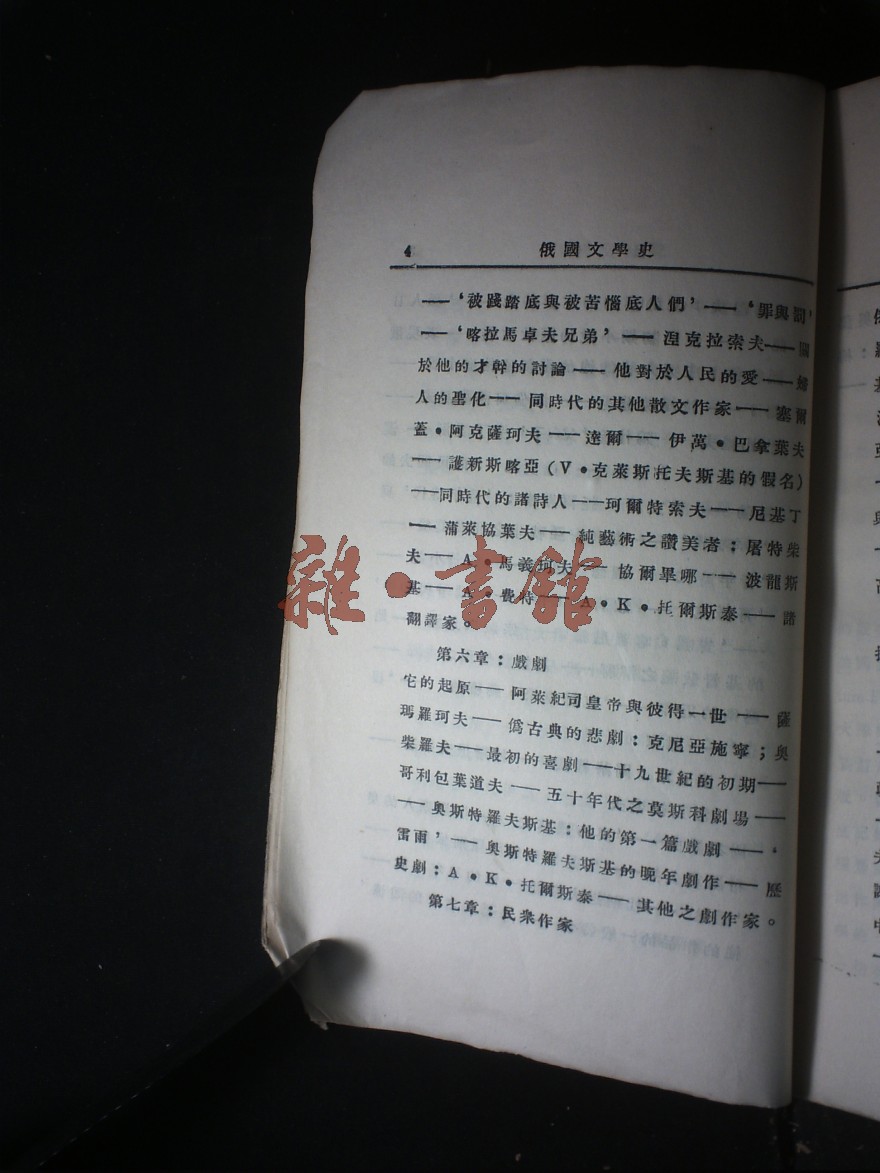 4 俄國文學史
——‘被踐踏底與被苦惱底人們’——‘罪與罰’
——‘喀拉馬卓夫兄弟’——湼克拉索夫——關
於他的才幹的討論——他對於人民的愛——婦
人的聖化——同時代的其他散文作家——塞爾
蓋•阿克薩珂夫——達爾——伊萬•巴拿葉夫
——護新斯喀亞(V•克萊斯托夫斯基的假名)
——同時代的諸詩人——珂爾特索夫——尼基丁
——蒲萊協葉夫——純藝術之讚美者；屠特柴
夫——A•馬義珂夫——協爾畢哪——波龍斯
基——A•費特——A•K•托爾斯泰——諸
翻譯家。
第六章：戲劇
它的起原——阿萊紀司皇帝與彼得一世——薩
瑪羅珂夫——僞古典的悲劇：克尼亞施寧；奥
柴羅夫——最初的喜劇——十九世紀的初期——
哥利包葉道夫——五十年代之莫斯科劇場——
——奥斯特羅夫斯基：他的第一篇戲劇——‘
雷雨’——奥斯特羅夫斯基的晚年劇作——歷
史劇；A•K•托爾斯泰——其他之劇作家。
第七章：民衆作家
雜•書館